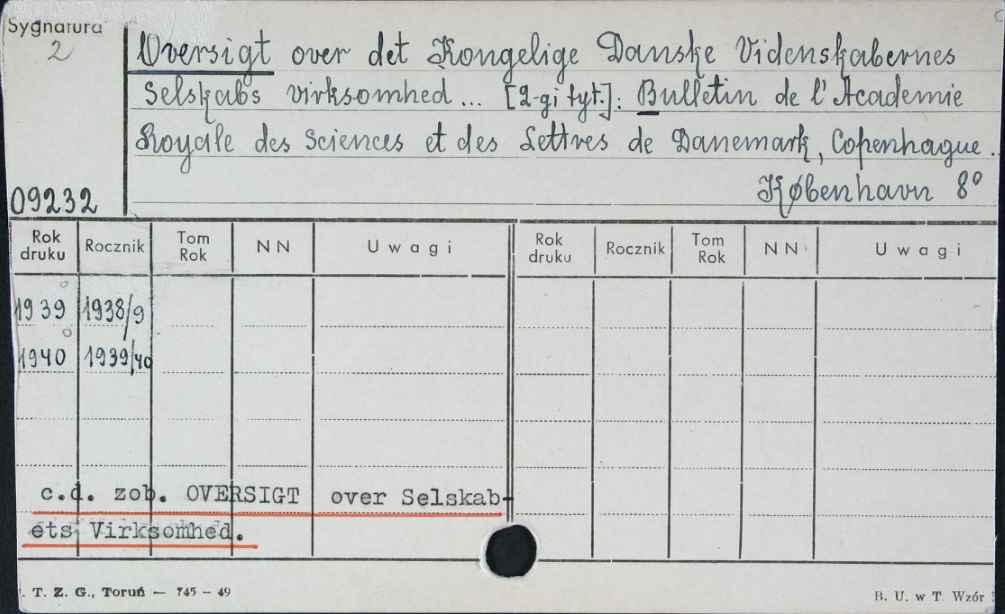 Sygnatura
2
Oversigt over det Kongelige Danske Videnskabernes
Selskabs virksomhed... [2-gi tyt.]: Bulletin de l'Academie
Royale des Sciences et des Lettres de Danemark, Copenhague.
09232
København 8°
Rok druku Rocznik Tom Rok NN Uwagi Rok druku Rocznik Tom Rok NN Uwagi
1939 1938/9
1940 1939/40
c.d. zob. OVERSIGT over Selskab-
ets Virksomhed.
. T. Z. G., Toruń — 745 – 49
B. U. w T. Wzór